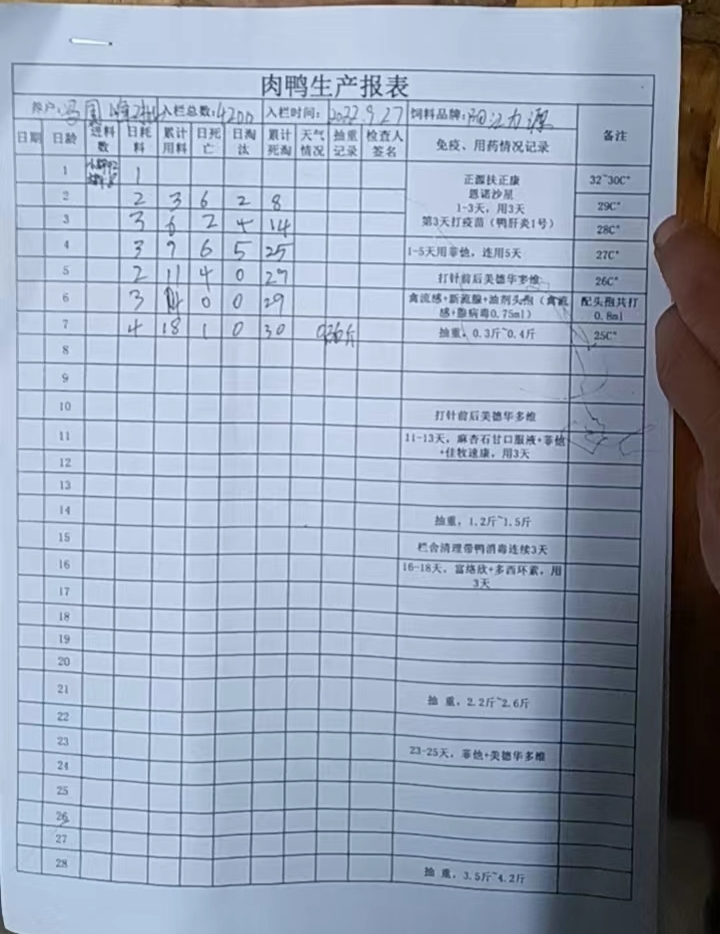 肉鸭生产报表
养户: 冯国 入栏总数:4200 入栏时间: 2022.9.27 饲料品牌: 阳江力源
日期 日龄 进料数 日耗料 累计用料 日死亡 日淘汰 累计死淘 天气情况 抽重记录 检查人签名 免疫、用药情况记录 备注
1 1 正源扶正康 32~30C°
恩诺沙星
2 2 3 6 2 8 1-3天，用3天 29C°
3 3 6 2 4 14 第3天打疫苗（鸭肝炎1号） 28C°
4 3 9 6 5 25 1-5天用菲他，连用5天 27C°
5 2 11 4 0 29 打针前后美德华多维 26C°
6 3 14 0 0 29 禽流感+新流腺+油剂头孢（禽流感+腺病毒0.75ml） 配头孢共打0.8ml
7 4 18 1 0 30 0.36斤 抽重，0.3斤~0.4斤 25C°
8
9
10 打针前后美德华多维
11 11-13天，麻杏石甘口服液+菲他+佳牧速康，用3天
12
13
14 抽重，1.2斤~1.5斤
15 栏舍清理带鸭消毒连续3天
16 16-18天，富络欣+多西环素，用3天
17
18
19
20
21 抽 重，2.2斤~2.6斤
22
23 23-25天，菲他+美德华多维
24
25
26
27
28 抽 重，3.5斤~4.2斤